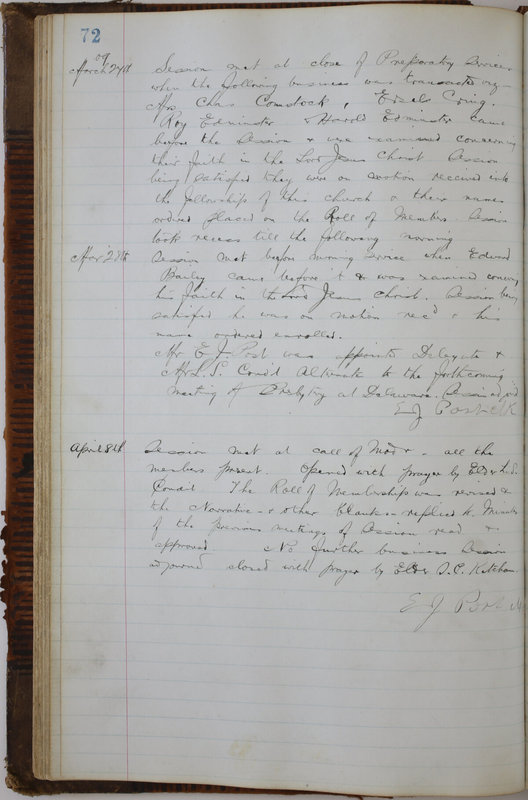 72
09
March 27th Session met at close of Preparatory Services
when the following business was transacted
Mrs. Chas Comstock,
Roy Edminster & Harold Edminster came
before the Session & were examined concerning
their faith in the Lord Jesus Christ Session
being satisfied they were on motion received into
the fellowship of this church & their names
ordered placed on the Roll of Members. Session
took recess till the following morning
Mar 28th Session met before morning service when Edward
Bailey came before it & was examined
his faith in the Lord Jesus Christ. Session being
satisfied he was on motion rec'd & his
name ordered enrolled.
Mr E J. Post was appointed Delegate &
Mr L. S. Condit Alternate to the forthcoming
meeting of Presbytry at Delaware. Session
E J Post
April 8th Session met at call of Mod'r. all the
members present. Opened with prayer by Elder L. S.
Condit The Roll of Membership was revised &
the Narrative & other blanks replied to. Minutes
of the previous meetings of Session read &
approved No further business Session
adjourned closed with prayer by Elder S. C. Ketcham.
E J Post